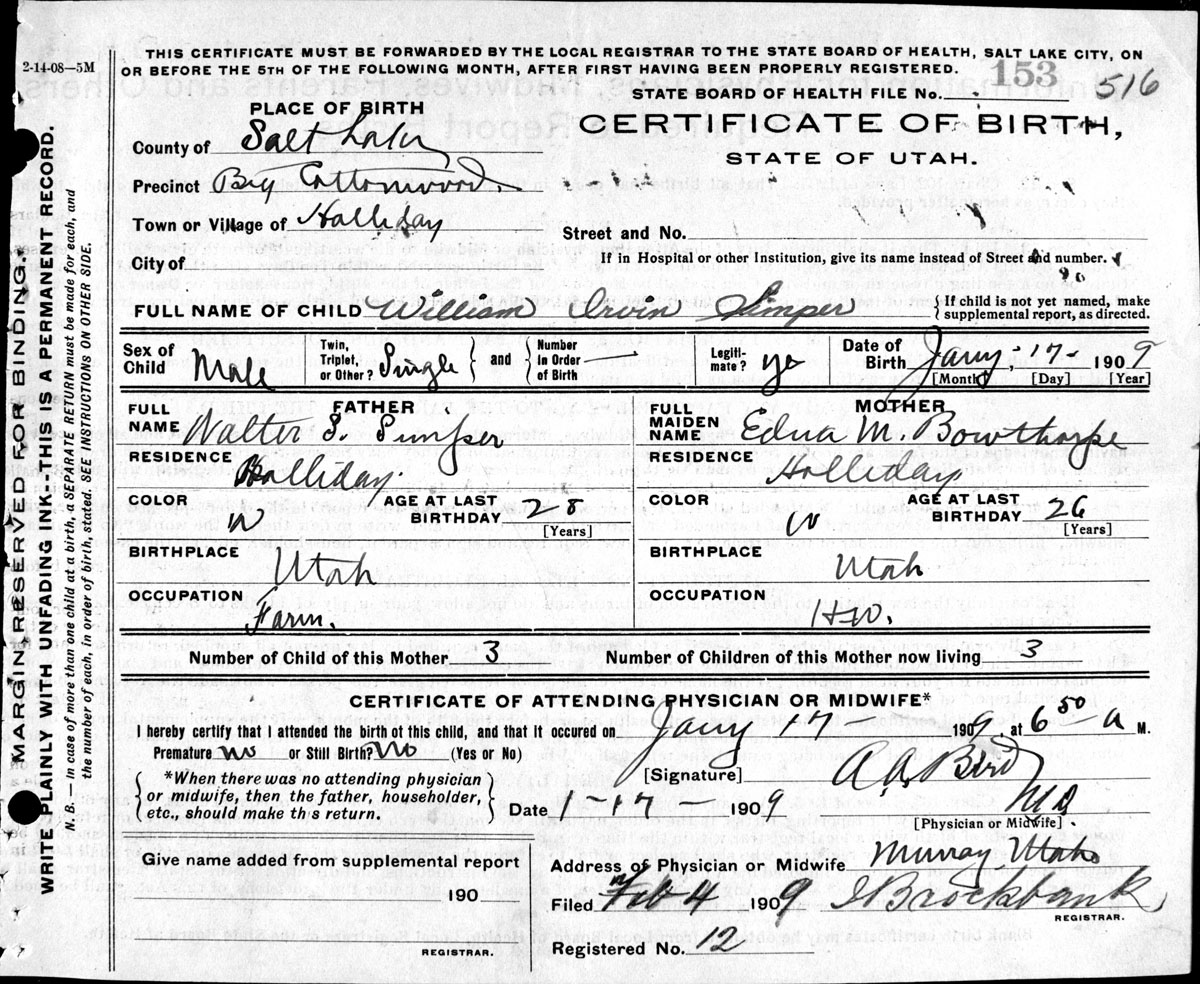 2-14-08—5M
THIS CERTIFICATE MUST BE FORWARDED BY THE LOCAL REGISTRAR TO THE STATE BOARD OF HEALTH, SALT LAKE CITY, ON
OR BEFORE THE 5TH OF THE FOLLOWING MONTH, AFTER FIRST HAVING BEEN PROPERLY REGISTERED.
STATE BOARD OF HEALTH FILE No. 153 516
PLACE OF BIRTH
CERTIFICATE OF BIRTH,
STATE OF UTAH.
County of Salt Lake
Precinct Big Cottonwood
Town or Village of Holliday
Street and No.
City of
If in Hospital or other Institution, give its name instead of Street and number.
FULL NAME OF CHILD William Irvin Simper
{If child is not yet named, make
supplemental report, as directed.
Sex of Child Male
Twin, Triplet, or Other? Single
and
Number in Order of Birth
Legitimate? ye
Date of Birth Jany 17 1909
[Month] [Day] [Year]
FATHER
FULL NAME Walter S. Simper
RESIDENCE Holliday
COLOR W
AGE AT LAST BIRTHDAY 28
[Years]
BIRTHPLACE Utah
OCCUPATION Farm.
MOTHER
FULL MAIDEN NAME Edna M. Bowthorpe
RESIDENCE Holliday
COLOR W
AGE AT LAST BIRTHDAY 26
[Years]
BIRTHPLACE Utah
OCCUPATION HW.
Number of Child of this Mother 3 Number of Children of this Mother now living 3
CERTIFICATE OF ATTENDING PHYSICIAN OR MIDWIFE*
I hereby certify that I attended the birth of this child, and that it occured on Jany 17 1909, at 6 50 a M.
Premature no or Still Birth? No (Yes or No)
*When there was no attending physician
or midwife, then the father, householder,
etc., should make this return.
[Signature] A. A. Bird
MD
[Physician or Midwife].
Date 1-17-1909
Give name added from supplemental report
190
REGISTRAR.
Address of Physician or Midwife Murray Utah
Filed Feb 4 1909 Brockbank
REGISTRAR.
Registered No. 12
MARGIN RESERVED FOR BINDING.
WRITE PLAINLY WITH UNFADING INK--THIS IS A PERMANENT RECORD.
N.B.—In case of more than one child at a birth, a SEPARATE RETURN must be made for each, and
the number of each, in order of birth, stated. SEE INSTRUCTIONS ON OTHER SIDE.